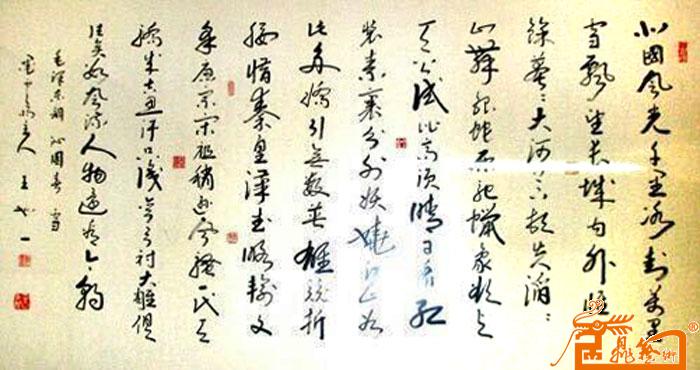 北國風光千里冰封萬里
雪飄望長城內外惟
餘莽々大河上下頓失滔々
山舞銀蛇原馳蠟象欲與
天公試比高須晴日看紅
裝素裹分外妖嬈江山如
此多嬌引無數英雄競折
腰惜秦皇漢武略輸文
采唐宗宋祖稍遜風騷一代天
驕成吉思汗只識彎弓射大雕俱
往矣數風流人物還看今朝
毛澤東詞 沁園春 雪
主人 王